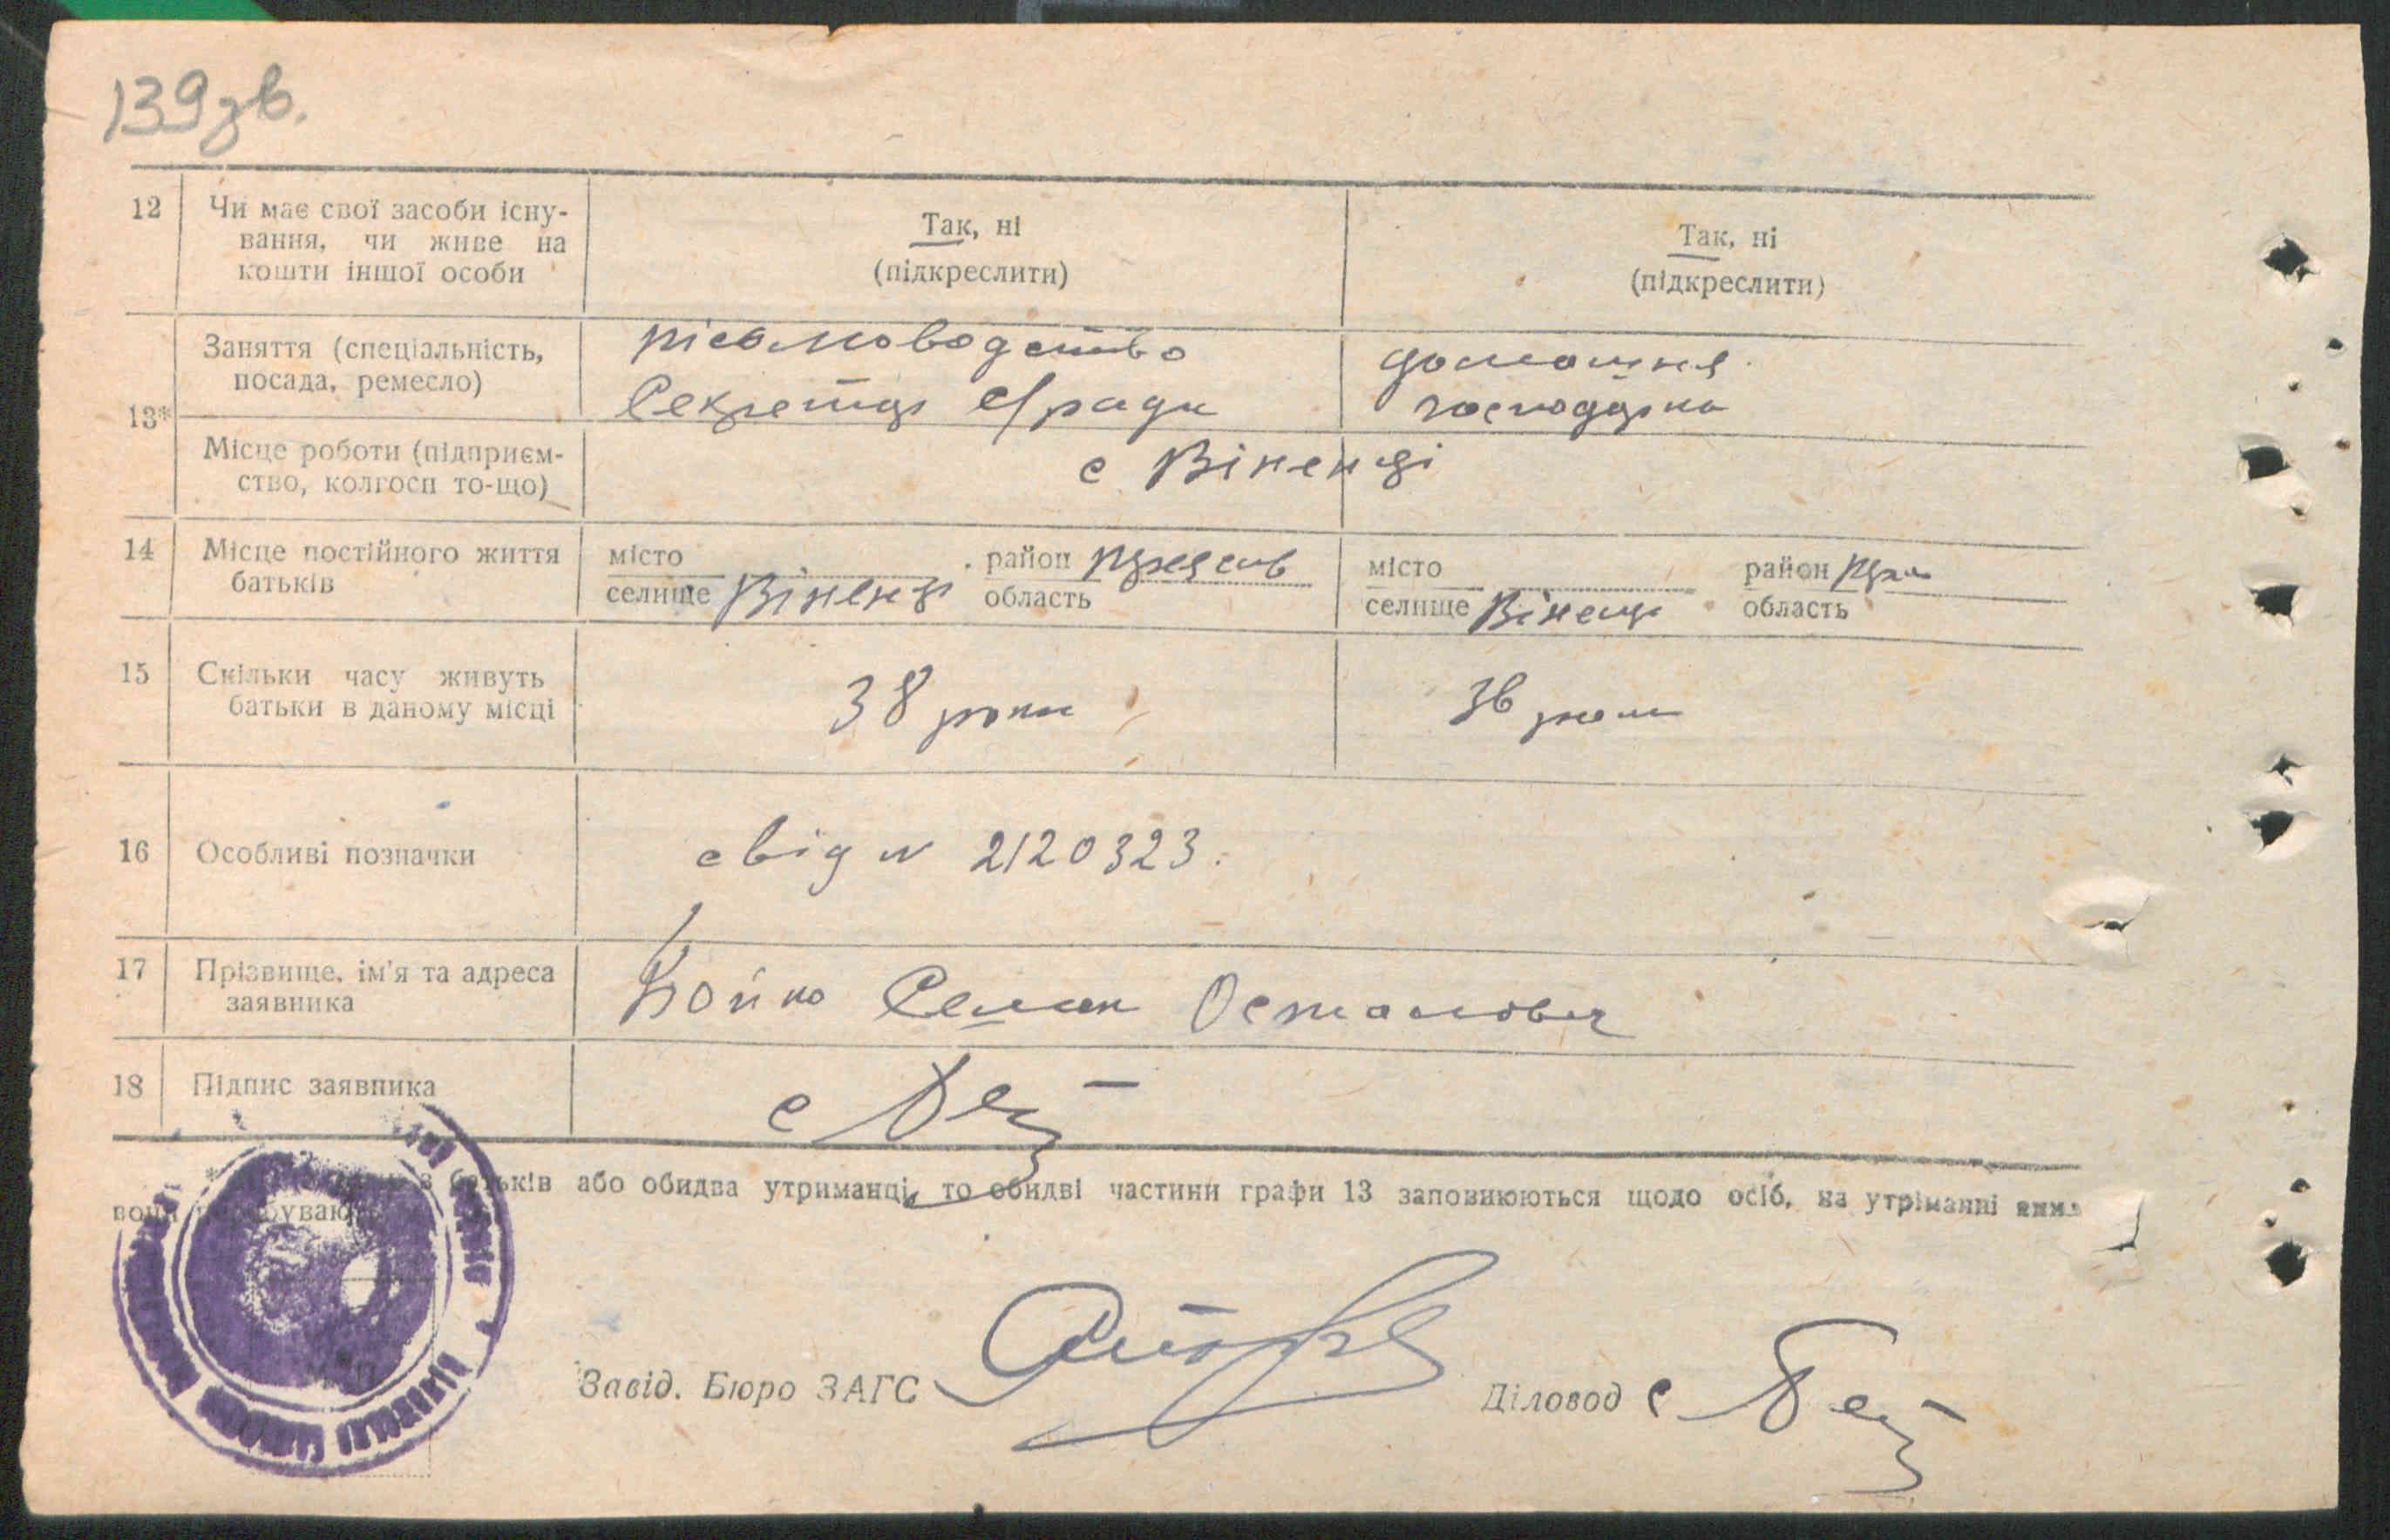 139 зв.
12 Чи має свої засоби існу-
вання, чи живе на
кошти іншої особи
Так, ні
(підкреслити)
Так, ні
(підкреслити)
13*
Заняття (спеціальність,
посада, ремесло)
письмоводство
Секретар с/ради
домашня
господарка
Місце роботи (підприєм-
ство, колгосп то-що)
с Віненці
14 Місце постійного життя
батьків
місто
селище Віненці
район
область
місто
селище Віненці
район
область
15 Скільки часу живуть
батьки в даному місці
38 роки
36 роки
16 Особливі позначки
свід N 2120323.
17 Прізвище, ім'я та адреса
заявника
Бойко Семен Остапович
18 Підпис заявника
з батьків або обидва утриманці, то обидві частини графи 13 заповнюються щодо осіб, на утріманні яких
вони перебувають
Завід. Бюро ЗАГС
Діловод